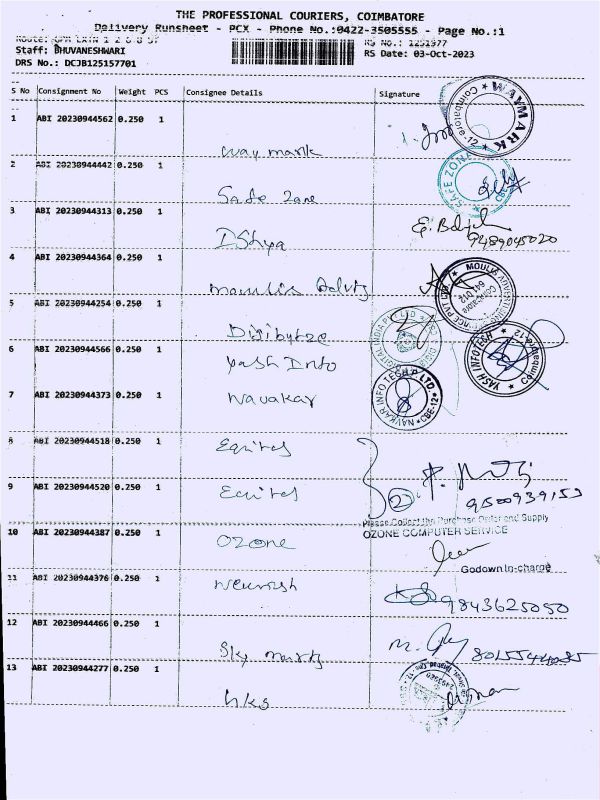 THE PROFESSIONAL COURIERS, COIMBATORE
Delivery Runsheet - PCX - Phone No.:0422-3505555 - Page No.:1
Staff: BHUVANESHWARI
RS No.: 1251977
DRS No.: DCJB125157701
RS Date: 03-Oct-2023
S No Consignment No Weight PCS Consignee Details Signature
1 ABI 20230944562 0.250 1
way mark
WAYMARK Coimbatore-12
2 ABI 20230944442 0.250 1
Safe Zone
SAFE ZONE
3 ABI 20230944313 0.250 1
IShya
9489045020
4 ABI 20230944364 0.250 1
5 ABI 20230944254 0.250 1
Digibytze
6 ABI 20230944566 0.250 1
Yash Info
YASH INFOTECH
7 ABI 20230944373 0.250 1
Navakar
NAVKAR INFO TECH LTD. CBE-12
8 ABI 20230944518 0.250 1
Equitas
9 ABI 20230944520 0.250 1
Equitas
2
Please Collect the Purchase Order and Supply
10 ABI 20230944387 0.250 1
OZONE COMPUTER SERVICE
Ozone
Godown In-charge
11 ABI 20230944376 0.250 1
9843625050
12 ABI 20230944466 0.250 1
13 ABI 20230944277 0.250 1
hks